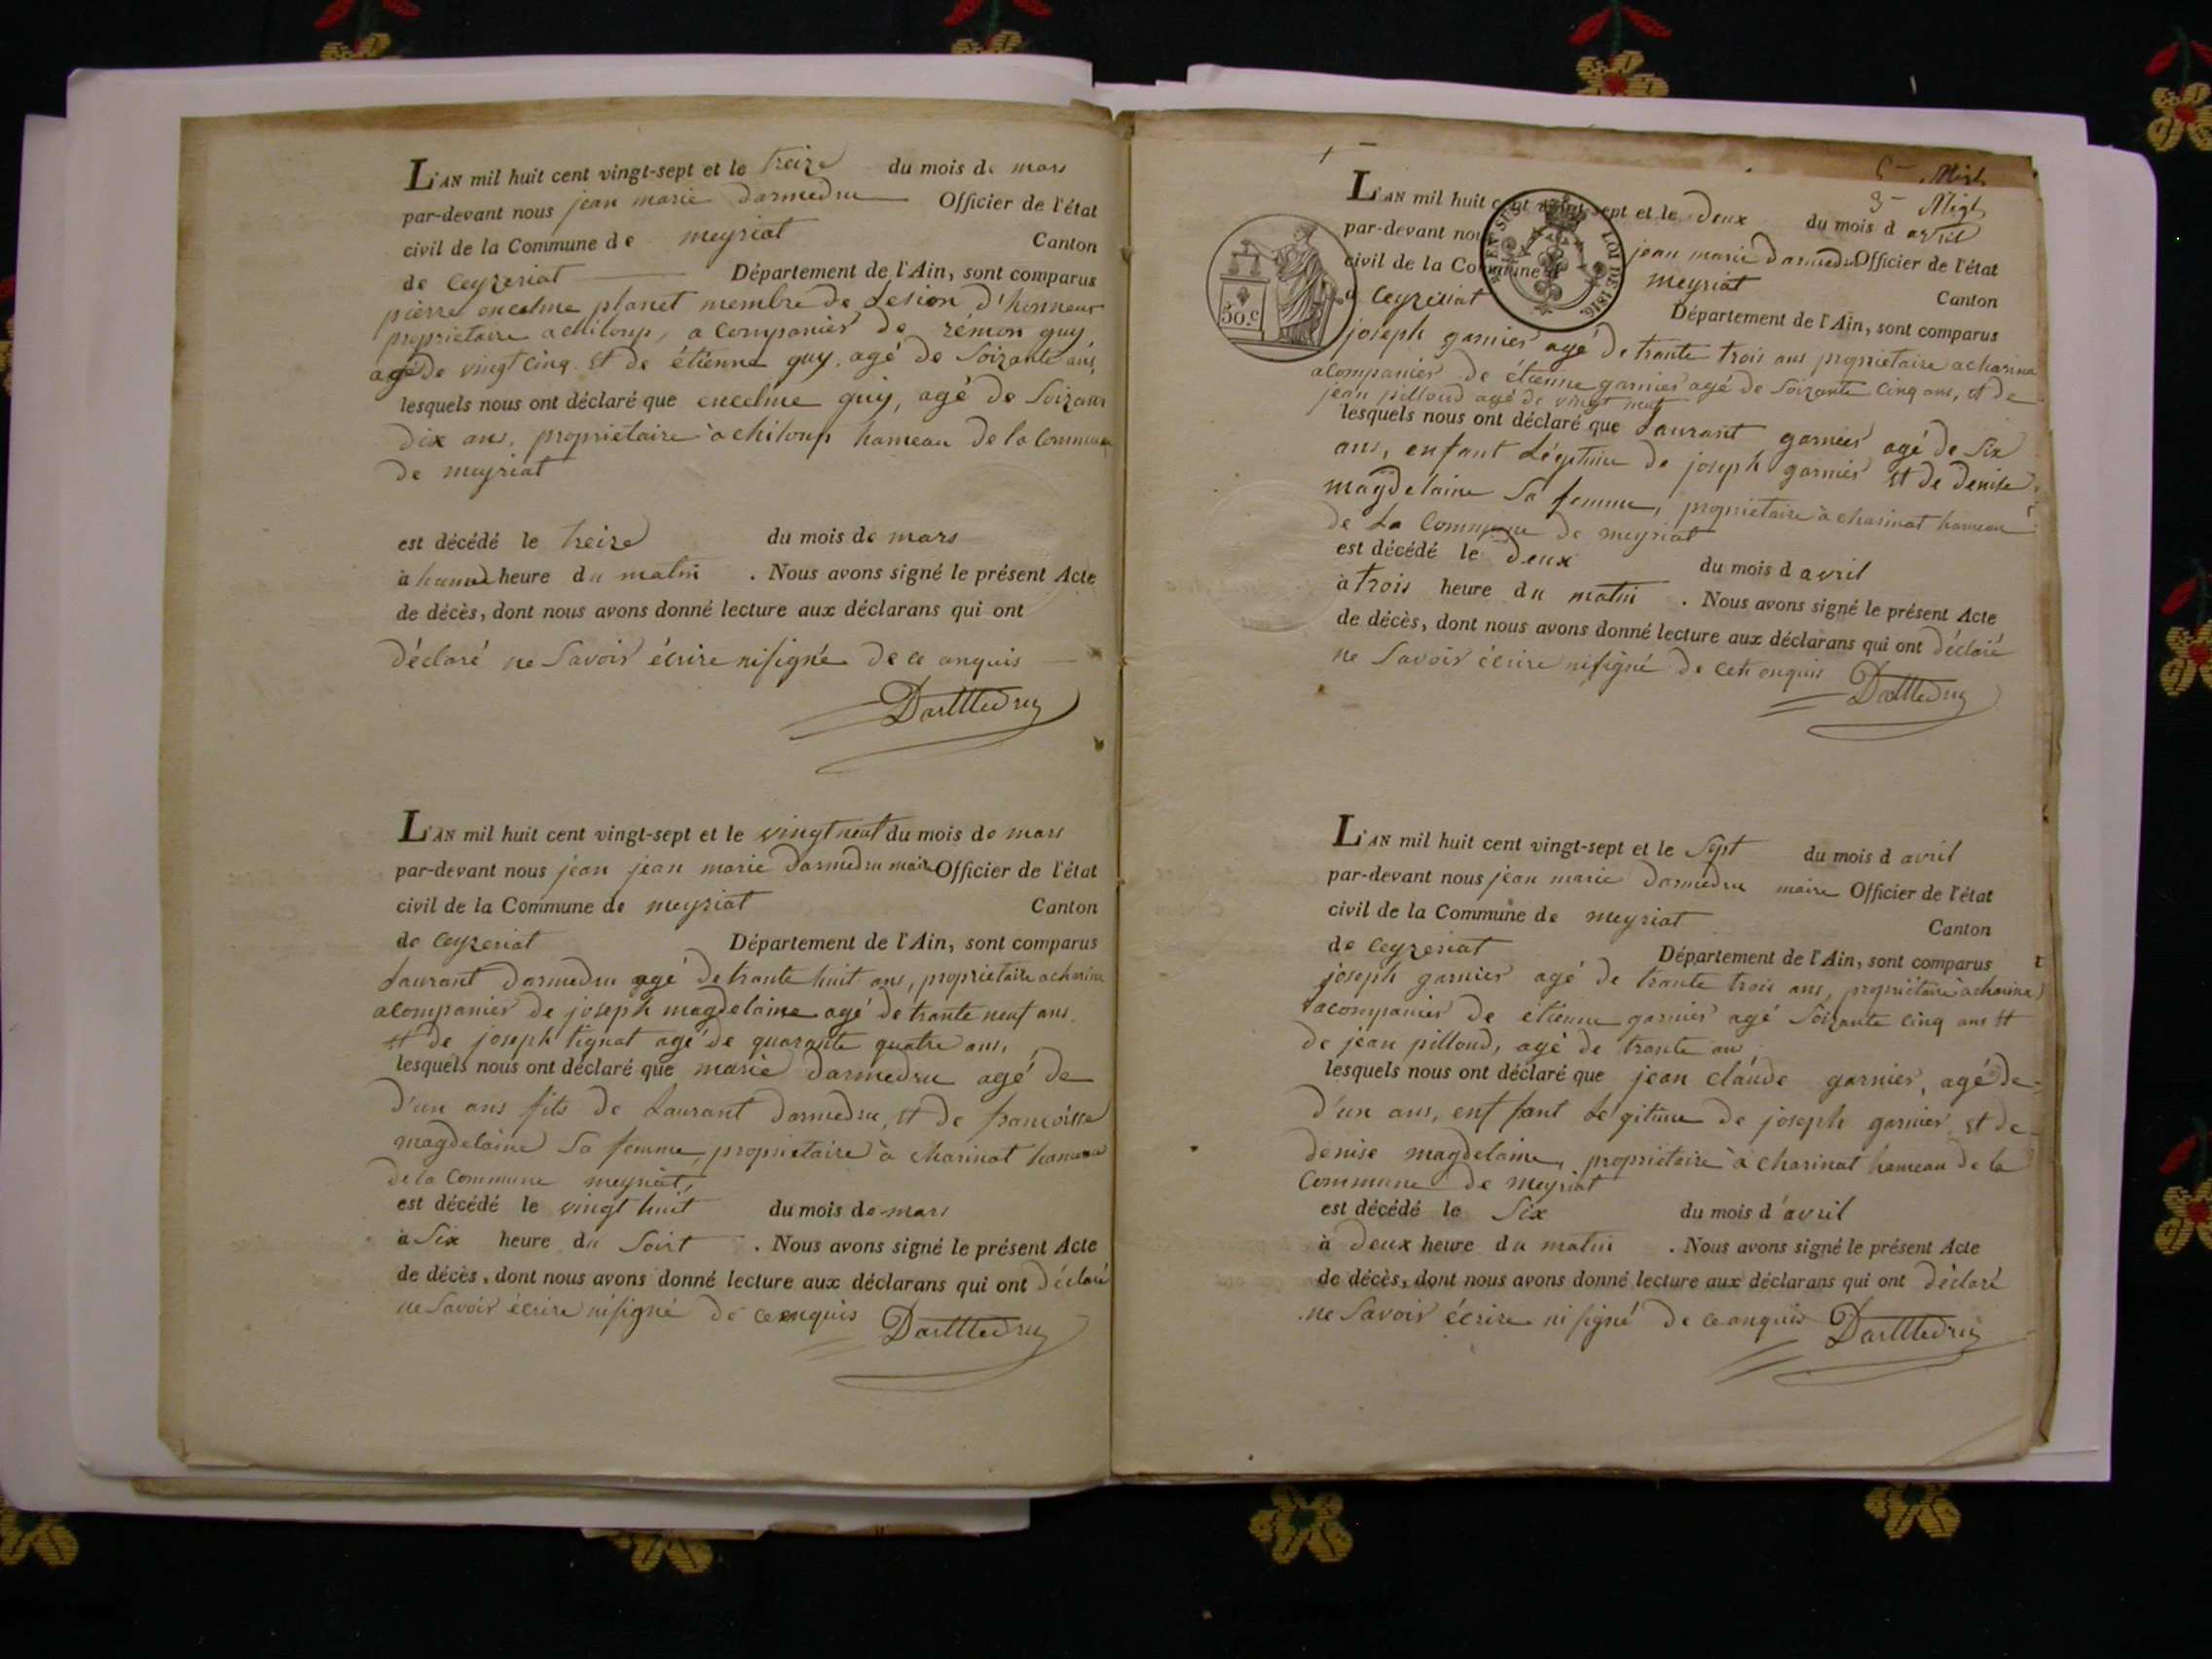 L'AN mil huit cent vingt-sept et le treize du mois de mars
par-devant nous jean marie darmedru Officier de l'état
civil de la Commune de meyriat Canton
de Ceyzeriat Département de l'Ain, sont comparus
pierre ancelme planet membre de Lesion d'honneur
proprietaire a chiloup, a Companier de rémon guy
agé de vingt Cinq et de étienne guy, agé de Soizante ans,
lesquels nous ont déclaré que encelme guy, agé de Soizant
dix ans, proprietaire a chiloup hameau de la Commune
de meyriat
est décédé le treize du mois de mars
à heure du matin . Nous avons signé le présent Acte
de décès, dont nous avons donné lecture aux déclarans qui ont
déclaré ne Savoir écrire ni signé de ce anquis
Darmedru
L'AN mil huit cent vingt-sept et le vingt neuf du mois de mars
par-devant nous jean jean marie darmedru maire Officier de l'état
civil de la Commune de meyriat Canton
de Ceyzeriat Département de l'Ain, sont comparus
Laurant darmedru agé de trante huit ans, proprietaire a charina
acompanier de joseph magdelaine agé de trante neuf ans
et de joseph tignat agé de quarante quatre ans,
lesquels nous ont déclaré que marie darmedru agé de
d'un ans fils de Laurant darmedru, et de françoisse
magdelaine Sa femme, proprietaire à Charinat hameau
de la Commune meyriat,
est décédé le vingt huit du mois de mars
à Six heure du Soirt . Nous avons signé le présent Acte
de décès, dont nous avons donné lecture aux déclarans qui ont déclaré
ne Savoir écrire ni signé de ce enquis Darmedru
L'AN mil huit cent vingt-sept et le deux du mois d avril
par-devant nous jean marie darmedru Officier de l'état
civil de la Commune de meyriat Canton
Ceyzeriat Département de l'Ain, sont comparus
50.c
EN SUS LOI DE 1816
joseph garnier agé de trante trois ans proprietaire a charina
acompanier de étienne garnier agé de Soizante Cinq ans, et de
jean pilloud agé de vingt neuf
lesquels nous ont déclaré que Laurant garnier agé de Six
ans, enfant Légitime de joseph garnier et de denise
magdelaine Sa femme, proprietaire à charinat hameau
de La Commune de meyriat
est décédé le deux du mois d avril
à trois heure du matin . Nous avons signé le présent Acte
de décès, dont nous avons donné lecture aux déclarans qui ont déclaré
ne Savoir écrire ni signé de ce enquis Darmedru
L'AN mil huit cent vingt-sept et le Sept du mois d avril
par-devant nous jean marie darmedru maire Officier de l'état
civil de la Commune de meyriat Canton
de Ceyzeriat Département de l'Ain, sont comparus
joseph garnier agé de trante trois ans, proprietaire a charina
acompanier de étienne garnier agé Soizante Cinq ans et
de jean pilloud, agé de trante an
lesquels nous ont déclaré que jean claude garnier, agé de
d'un ans, enffant Légitime de joseph garnier et de
denise magdelaine, proprietaire à charinat hameau de la
Commune de meyriat
est décédé le Six du mois d'avril
à deux heure du matin . Nous avons signé le présent Acte
de décès, dont nous avons donné lecture aux déclarans qui ont déclaré
ne Savoir écrire ni signé de ce anquis Darmedru